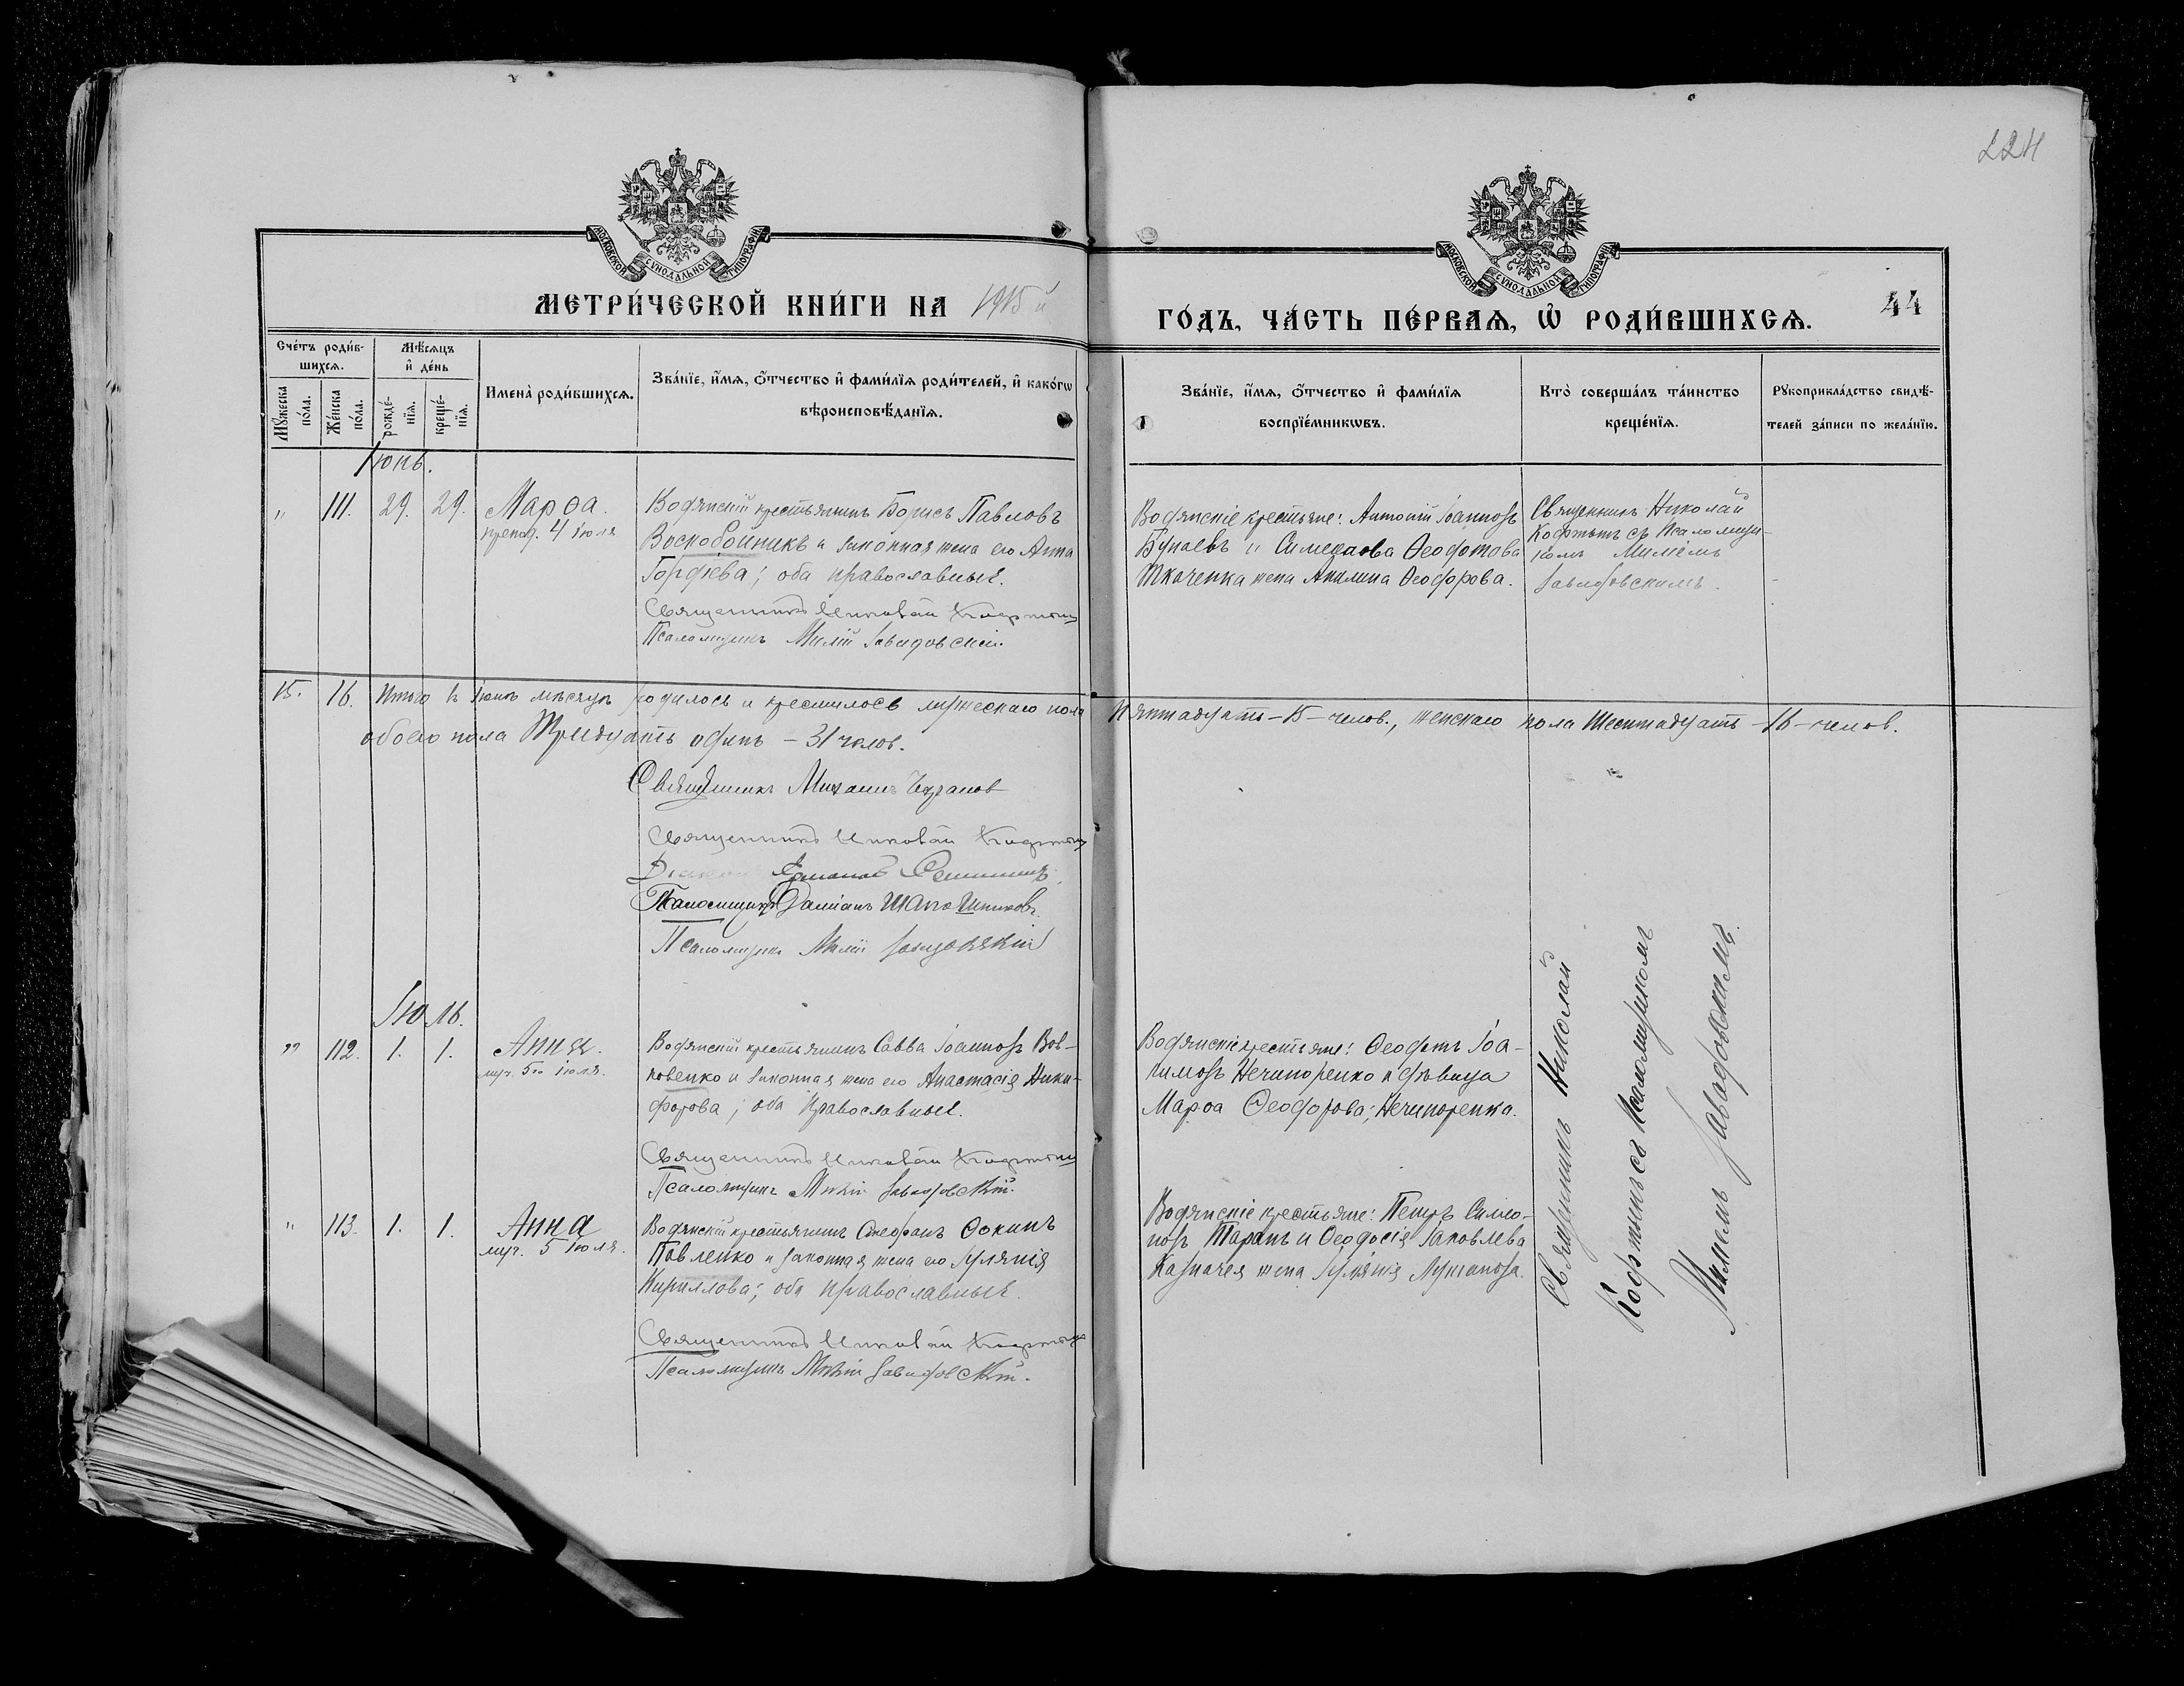 224
МОСКОВСКОЙ СѴНОДАЛЬНОЙ ТИПОГРАФІИ
МОСКОВСКОЙ СѴНОДАЛЬНОЙ ТИПОГРАФІИ
МЕТРИ́ЧЕСКОЙ КНИ́ГИ НА 1915 й
ГО́ДЪ, ЧА́СТЬ ПЕ́РВАѦ, Ѡ҆ РОДИ́ВШИХСѦ.
44
Сче́тъ роди́в-
шихсѧ.
Мꙋжеска по́ла.
Же́нска по́ла.
Мѣ́сѧцъ
и҆ де́нь
рожде́-
нїѧ.
креще́-
нїѧ.
Имена̀ роди́вшихсѧ.
Зва́нїе, и҆́мѧ, ѻ҆́тчество и҆ фами́лїѧ роди́телей, и҆ како́гѡ
вѣроисповѣ́данїѧ.
Зва́нїе, и҆́мѧ, ѻ҆́тчество и҆ фами́лїѧ
воспрїе́мникѡвъ.
Кто̀ соверша́лъ та́инство
креще́нїѧ.
Рꙋкоприкла́дство свидѣ́-
телей за́писи по жела́нїю.
Іюнь.
" 111. 29. 29. Марѳа.
препод. 4 іюля
Водянскій крестьянинъ Борисъ Павловъ
Воскобойникъ и законная жена его Анна
Гордѣева; оба православные.
Священникъ Николай Кофтынъ
Псаломщикъ Милій Завадовскій.
Водянскіе крестьяне: Антоній Іоанновъ
Бунаевъ и Симеонова Ѳеодотова
Ткаченка жена Акилина Ѳеодорова.
Священникъ Николай
Кофтынъ съ Псаломщи-
комъ Миліемъ
Завадовскимъ.
15. 16. Итого въ Іюнѣ мѣсяцѣ родилось и крестилось мужескаго пола
Пятнадцать - 15 - челов., женскаго пола Шестнадцать - 16 - челов.
обоего пола Тридцать одинъ - 31 челов.
Священникъ Михаилъ
Священникъ Николай Кофтынъ
Діаконъ
Псаломщикъ Даміанъ Шапошниковъ.
Псаломщикъ Милій Завадовскій
Іюль.
" 112. 1. 1. Анна.
муч. 5го іюля.
Водянскій крестьянинъ Савва Іоанновъ Вов-
ковенко и законная жена его Анастасія Ники-
форова; оба православные.
Священникъ Николай Кофтынъ
Псаломщикъ Милій Завадовскій.
Водянскіе крестьяне: Ѳеодотъ Іоа-
кимовъ Нечипоренко и дѣвица
Марѳа Ѳеодорова, Нечипоренка.
" 113. 1. 1. Анна
муч. 5 Іюля.
Водянскій крестьянинъ Стефанъ Ѳокинъ
Павленко и законная жена его Іуліанія
Кириллова; оба православные.
Священникъ Николай Кофтынъ
Псаломщикъ Милій Завадовскій.
Водянскіе крестьяне: Петръ Симео-
новъ Таранъ и Ѳеодосія Іаковлева
Казначея жена Іуліанія
Священникъ Николай
Кофтынъ съ Псаломщикомъ
Миліемъ Завадовскимъ.